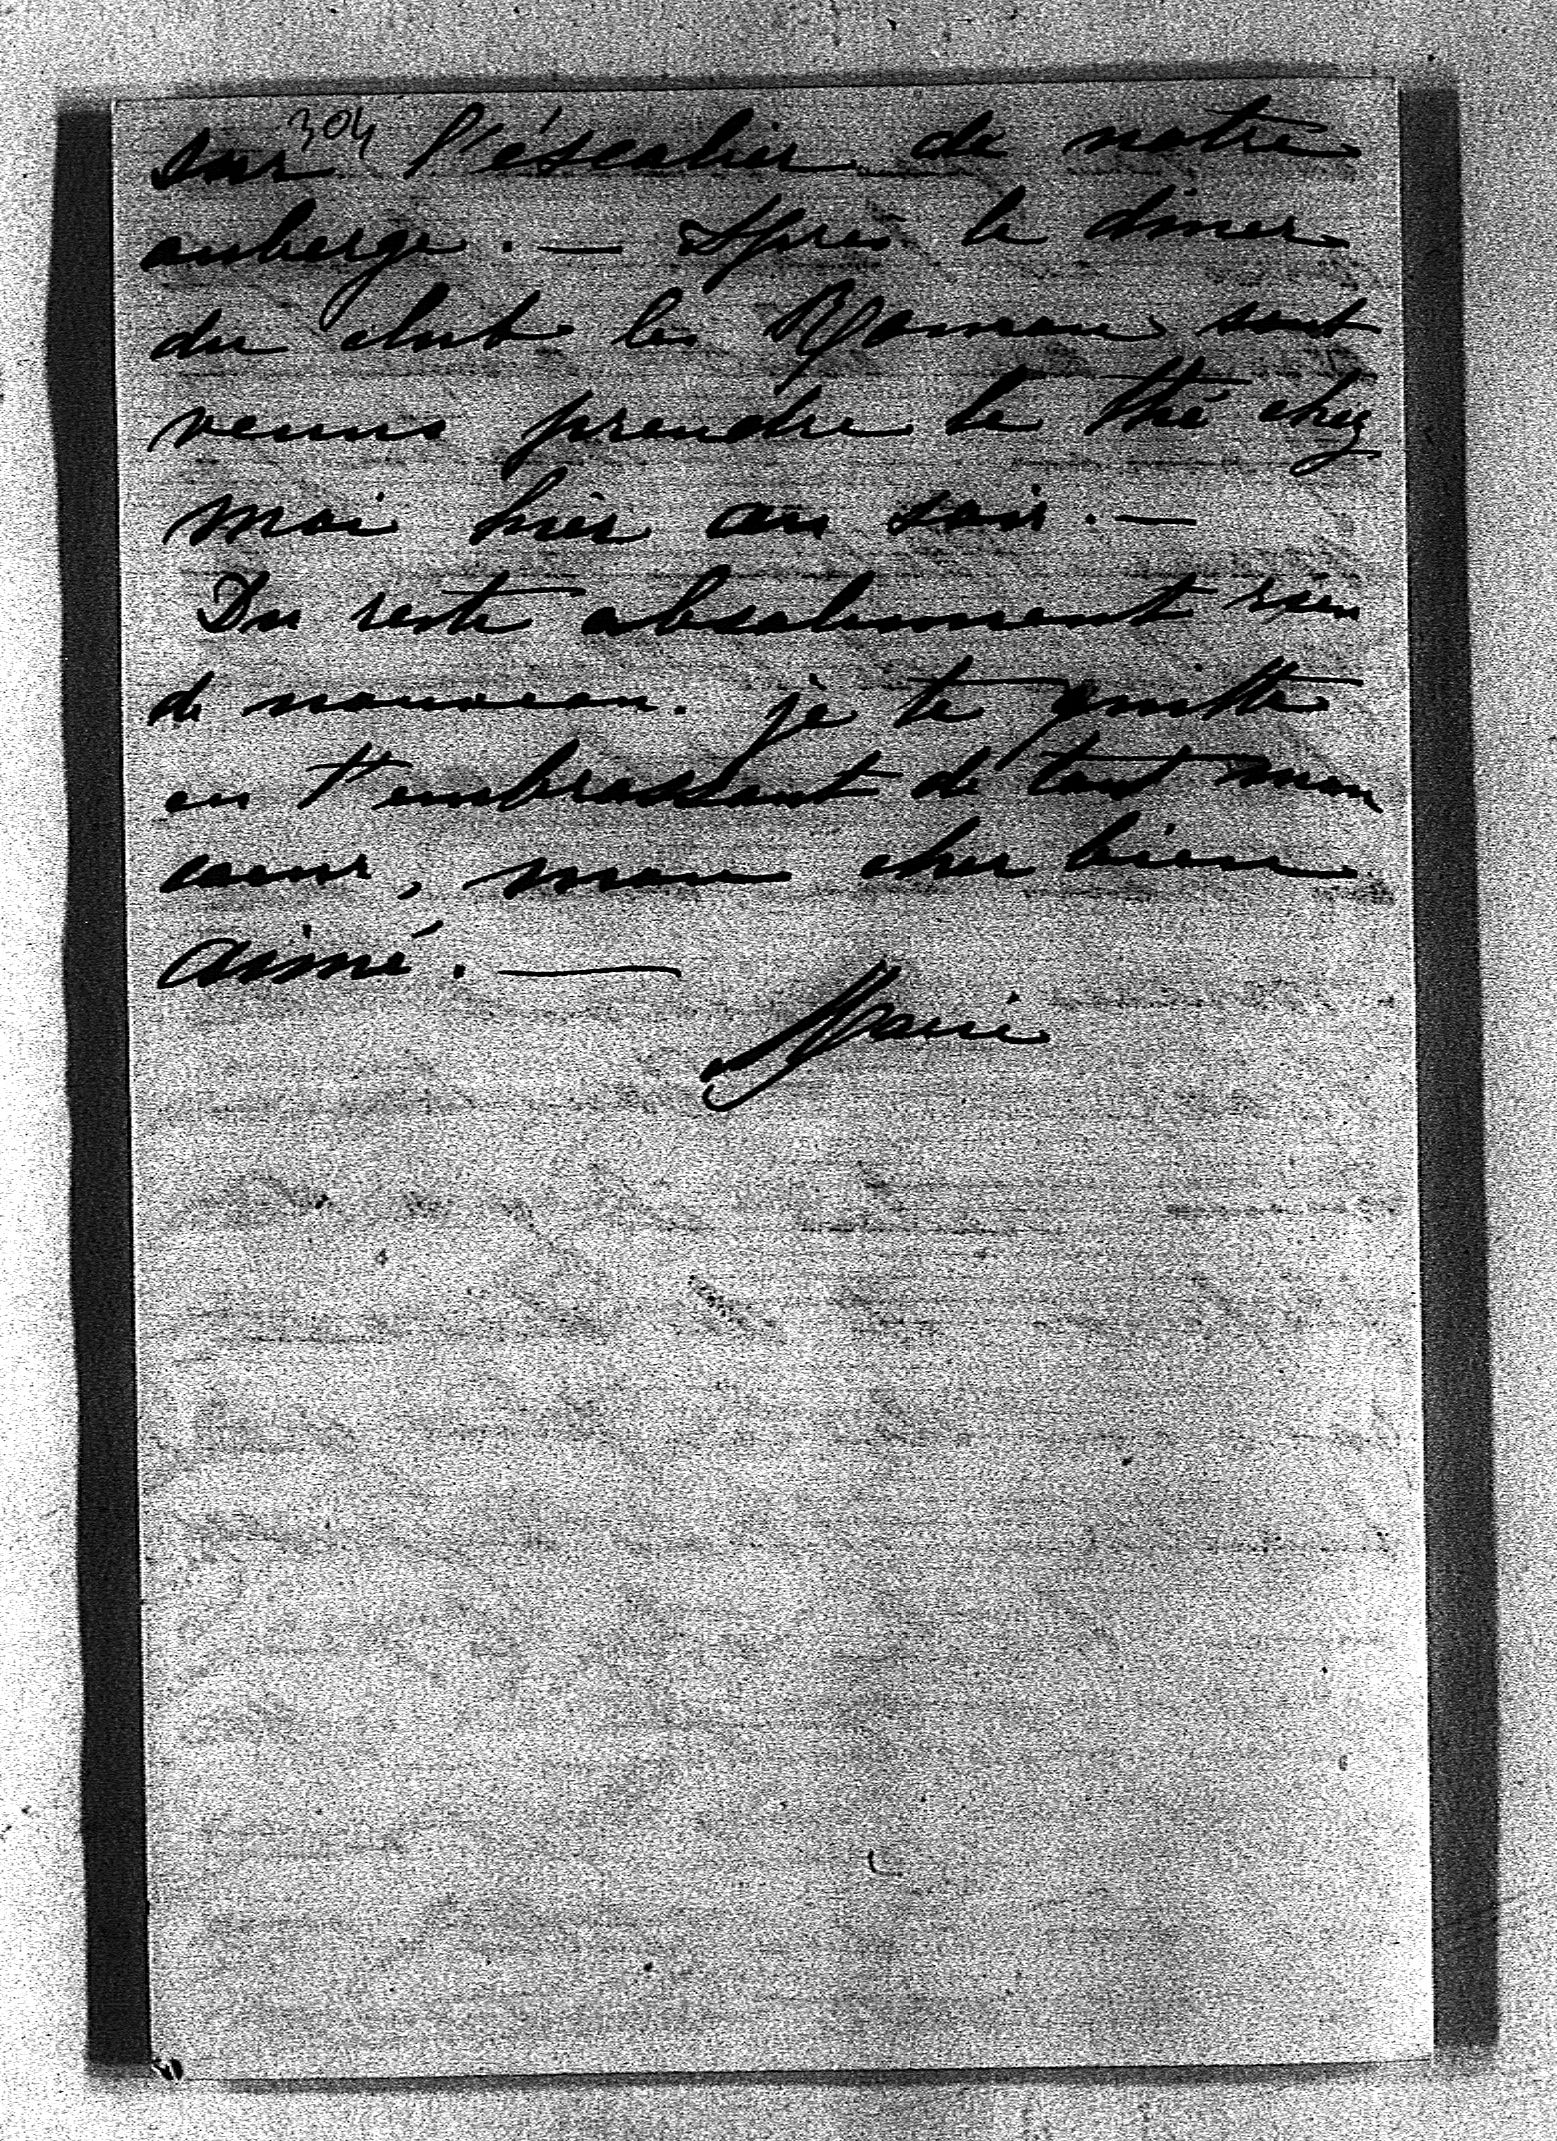 304
sur l'éscalier de notre
auberge. — Après le diner
du club les sont
venus prendre le thé chez
moi hier au soir. —
Du reste absolument rien
de nouveau. je te quitte
en t'embrassant de tout mon
coeur, mon cher bien
aimé. —
Marie